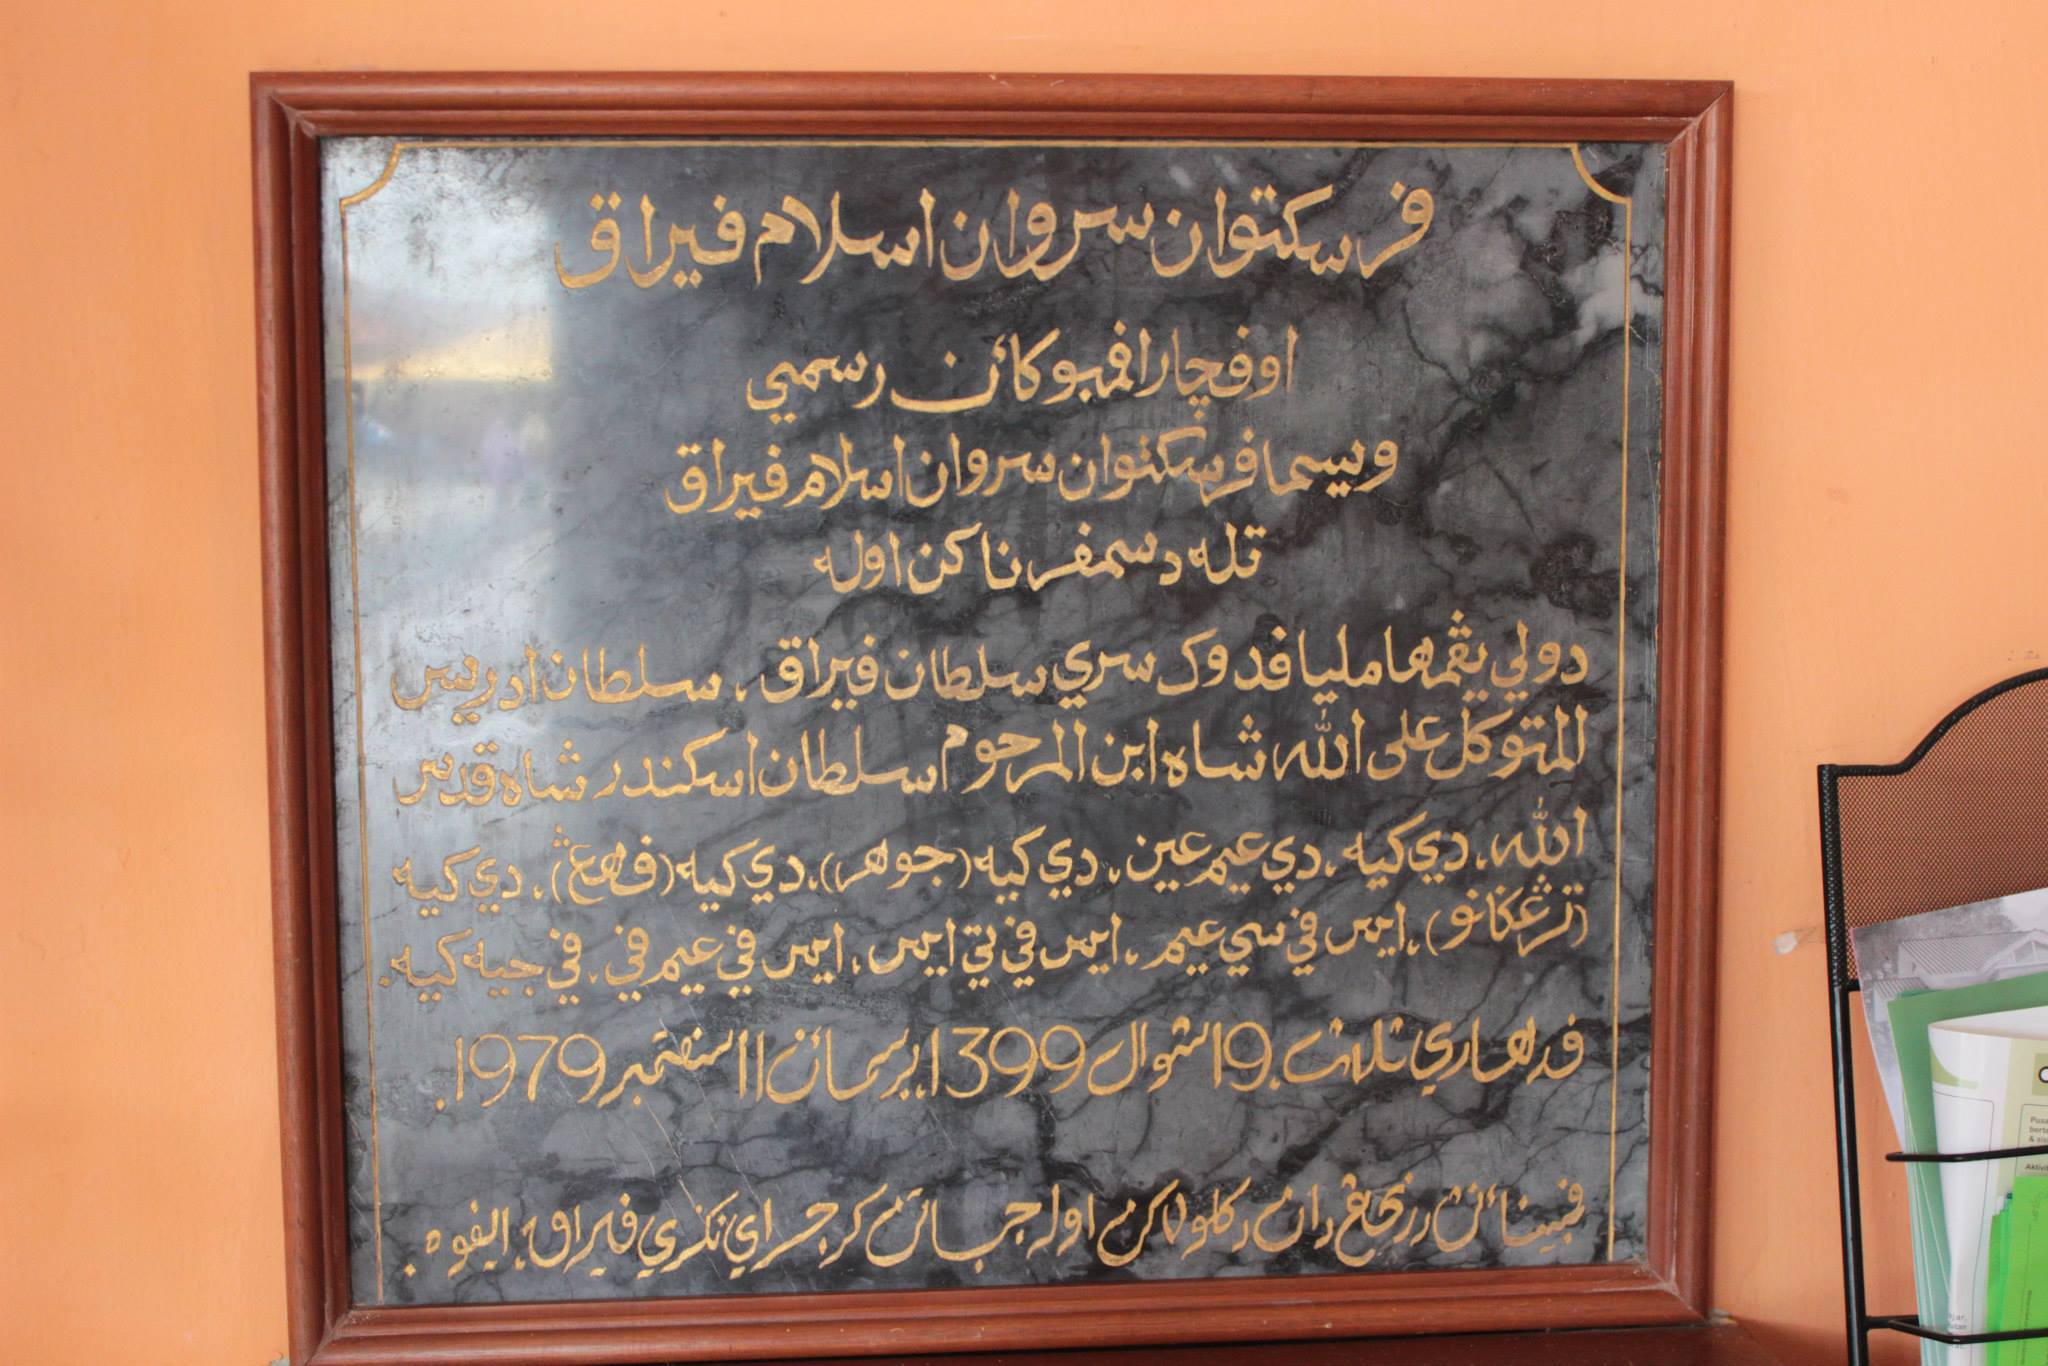 فرسكتوان سروان اسلام فيراق
اوفچارا فمبوكاٴن رسمي
ويسما فرسكتوان سروان اسلام فيراق
تله دسمفرناكن اوله
دولي يڠمها مليا فدوك سري سلطان فيراق، سلطان ادريس
المتوكل على الله شاه ابن المرحوم سلطان اسكندر شاه قدس
الله، دي كيه، دي عيم عين، دي كيه (جوهر)، دي كيه (فهڠ)، دي كيه
(ترڠكانو)، ايس في سي عيم، ايس في تي ايس، ايس في عيم في، في جيه كيه.
فد هاري ثلاث، 19 شوال 1399، برسماٴن 11 سفتمبر 1979.
فبيناٴن درنچڠ دان دكلولاكن اوله جباتن كرجراي نكري فيراق، ايفوه.